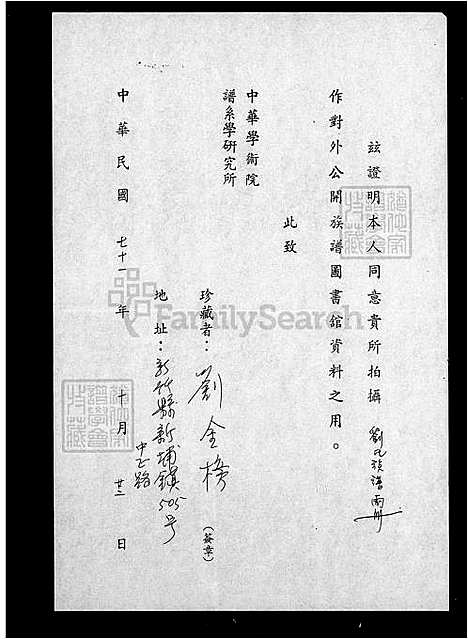 玆證明本人同意貴所拍攝劉氏族譜兩冊
作對外公開族譜圖書舘資料之用。
此致
中華學術院
譜系學研究所
珍藏者：劉金榜（簽章）
地址：新竹縣新埔鎮中正路505号
中華民國七十一年十月廿三日
FamilySearch